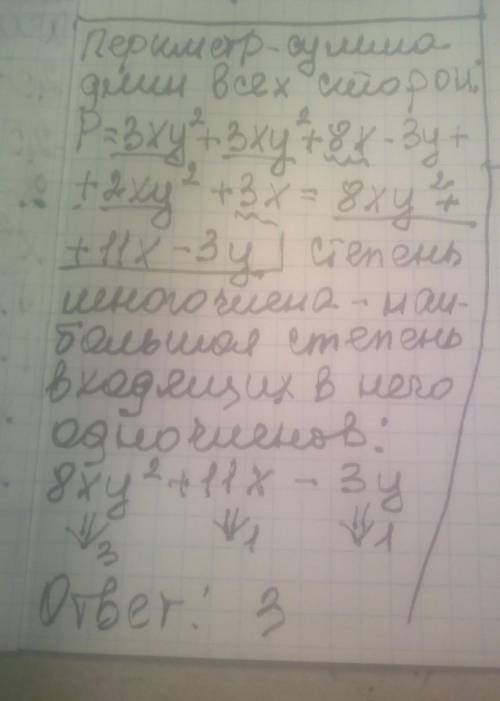 Периметр-сумма
длин всех сторон.
P=3xy²+3xy²+8x-3y+
+2xy²+3x=8xy²+
+11x-3y степень
многочлена-наи-
большая степень
входящих в него
одночленов:
8xy²+11x-3y
⇓3 ⇓1 ⇓1
Ответ: 3